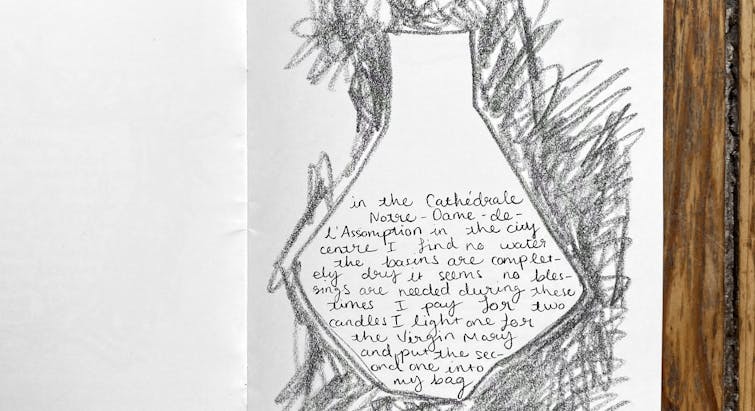 in the Cathédrale
Notre-Dame-de-
l'Assomption in the city
centre I find no water
the basins are complet-
ely dry it seems no bles-
sings are needed during these
times I pay for two
candles I light one for
the Virgin Mary
and put the sec-
ond one into
my bag